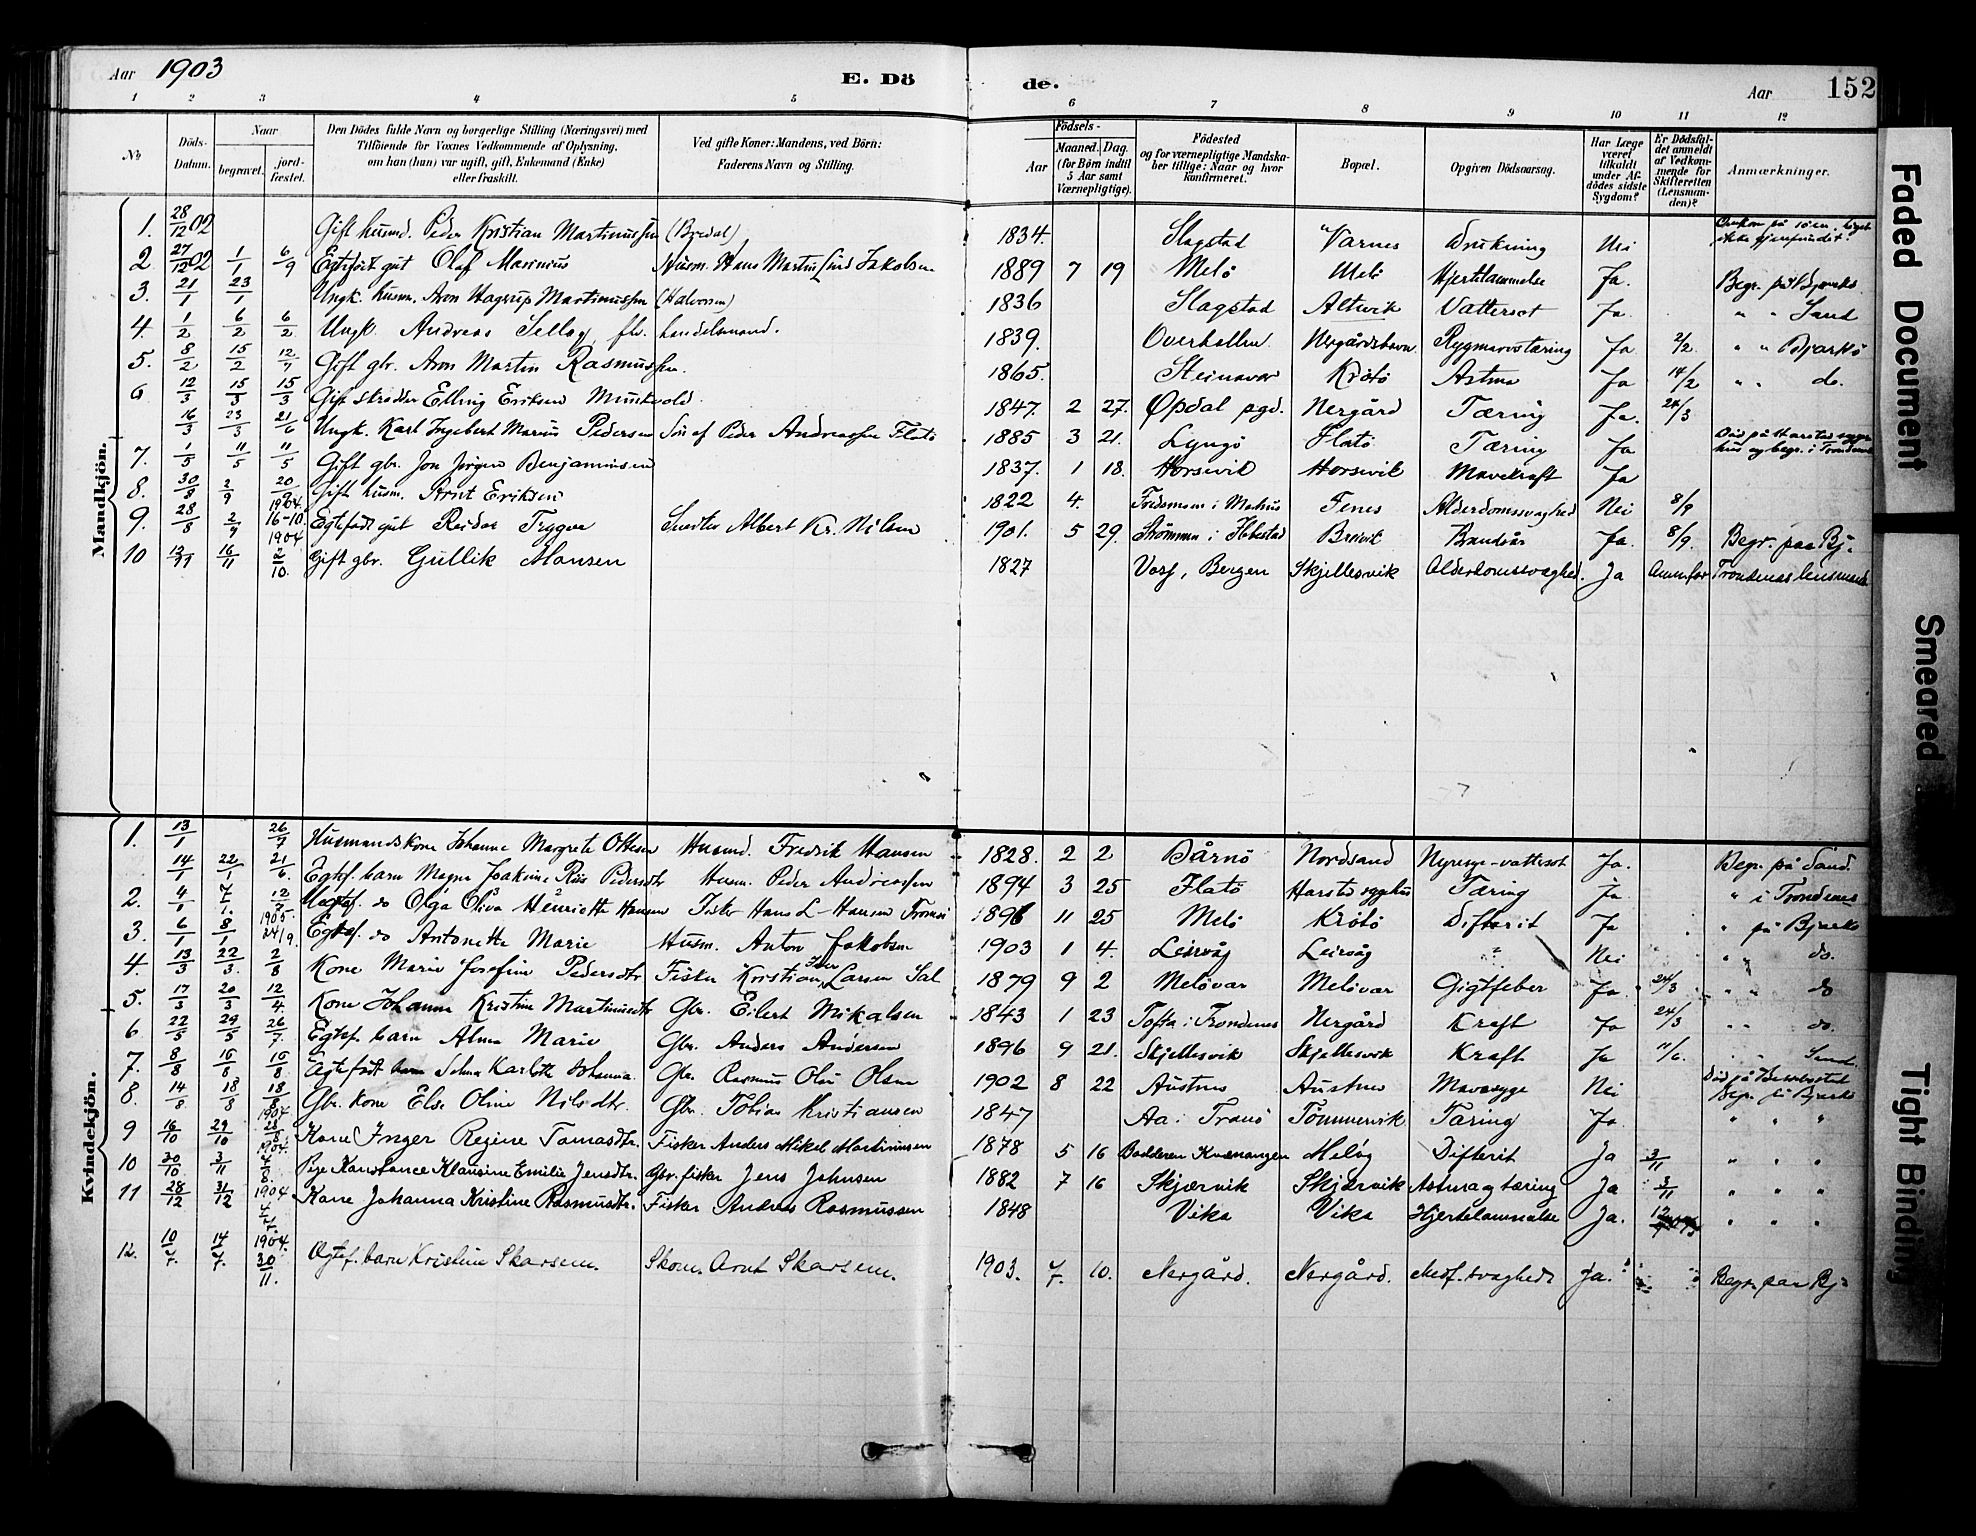 Aar 1903 E. Døde. Aar 152
1 2 3 4 5 6 7 8 9 10 11 12
No
Døds-Datum.
Naar
begravet.
jord-fæstet.
Den Dødes fulde Navn og borgerlige Stilling (Næringsvei) med
Tilføiende for Voxnes Vedkommende af Oplysning,
om han (hun) var ugift, gift, Enkemand (Enke)
eller fraskilt.
Ved gifte Koner: Mandens, ved Børn:
Faderens Navn og Stilling.
Fødsels-
Aar
Maaned. Dag.
(for Børn indtil
5 Aar samt
Værnepligtige).
Fødested
og for værnepligtige Mandska-
ber tillige: Naar og hvor
konfirmeret.
Bopæl.
Opgiven Dødsaarsag.
Har Læge
været
tilkaldt
under Af-
dødes sidste
Sygdom?
Er Dødsfal-
det anmeldt
af Vedkom-
mende for
Skifteretten
(Lensman-
den)?
Anmærkninger.
Mandkjøn.
1. 28/12 02 Gift husmd. Peder Kristian Martinussen (Bredal) 1834. Slagstad Varnes Drukning Nei
2. 27/12 02 1/1 6/9 Egtefødt gut Olaf Marinius Husm. Hans Martin Lind Jakobsen 1889 7 19 Melö Melö Hjertelammelse Ja. Begr. på Bjarkö
3. 21/1 23/1 Ungk. husm. Aron Hagerup Martinussen (Halvorsen) 1836 Slagstad Altevik Vattersot Ja. " " Sand
4. 1/2 6/2 6/2 Ungk. Andreas fhv. handelsmand. 1839. Overhallen Nergårdshavn Rygmarvstæring Ja 2/2. " " Bjarkö
5. 8/2 15/2 12/7 Gift gbr. Aron Martin Rasmussen. 1865. Steinavær Krötö Astma Ja 14/2 " " do.
6 12/3 15/3 15/3 Gift skrædder Elling Eriksen Munkvold. 1847. 2 27. Opdal pgd. Nergård Tæring Ja. 24/3
16/3 23/3 21/6 Ungk. Karl Ingebert Marius Pedersen Sön af Peder Andreassen Flatö 1885 3 21. Lyngö Flatö Tæring Ja Död på Harstad syge-
hus og begr. i Trondenes
7. 1/5 11/5 11/5 Gift gbr. Jon Jörgen Benjaminsen 1837. 1 18. Horsevik Horsevik Mavekræft Ja
8. 30/8 2/9 20/9 1904. Gift husm. Arnt Eriksen 1822 4. Fenes Alderdomssvaghed Nei 8/9
9. 28/8 2/9 16-10 1904 Egtefødt gut Reidar Trygve Albert Kr. Nilsen 1901. 5 29. Strömmen i Ibbestad Breivik Brandsår Ja. 8/9. Begr. paa Bj.
10 12/11 16/11 2/10. Gift gbr. Gullik Hansen 1827 Voss, Bergen Skjellesvik Alderdomssvaghed. Ja Anm. for Trondenes lensmand
Kvindekjön.
1. 13/1 26/7 Husmandskone Johanne Margrete Ottesen Husmd. Fredrik Hansen 1828. 2 2 Bårnö Nordsand Nyresyge-vattersot Ja. Begr. på Sand
14/1 22/1 21/6 Egtef. barn Magna Joakime Pedersdtr Husm. Peder Andreassen 1894 3 25 Flatö Harstad sygehus Tæring Ja. " i Trondenes
2. 4/1 7/1. 12/7 1905. Uegtef. do Olga Oliva Henriette Hansen Fisker Hans L. Hansen Tromsö 1896 11 25 Melö Krötö Difterit Ja " på Bjarkö
3. 6/1 8/1 24/9. Egtef. do Antonette Marie Husm. Anton Jakobsen 1903 1 4. Leirvåg Leirvåg ? Nei " " do.
4. 13/3 22/3. 2/8 Kone Marie Josefine Pedersdtr Fisker Kristian Larsen Sal 1879 9 2 Melövær Melövær Gigtfeber Ja. 24/3 " " do
5. 17/3 20/3 12/4. Kone Johanna Kristine Martinusdtr Gbr. Eilert Mikalsen 1843 1 23 Tofta i Trondenes Nergård Kræft Ja 24/3 " " do.
6. 22/5 29/5 26/7. Egtef. barn Alma Marie Gbr. Anders Andersen 1896 9 21. Skjellesvik Skjellesvik Kræft Ja 11/6. " " Sand
7. 8/8 16/8 16/8. Egtefødt barn Selma Karlotte Johanna Gbr. Rasmus Olai Olsen 1902 8 22 Austnes Austnes Mavesyge Nei
8. 14/8. 18/8 18/8 1904 Gbr. kone Else Oline Nilsdtr. Gbr. Tobias Kristiansen 1847 Aa i Tranö Tömmervik Tæring Ja. " " "
9 16/10 29/10 28/8 1904. Kone Inger Regine Tomasdtr. Fisker Anders Mikal Martinussen 1878 5 16 Badderen Kvænangen Melög Difterit Ja 3/11 " " "
10 30/10 3/11 4/9 1904 Pige Konstance Klausine Emilie Jensdtr. Gbr. fisker Jens Johnsen 1882 7 16 Skjærvik Skjærvik Astma og tæring Ja 3/11 " " "
11 28/12 31/12 4/4. 1904. Kone Johanna Kristine Rasmusdtr. Fisker Andreas Rasmussen 1848 Vika Vika Hjertelammelse Ja. " " "
12. 10/7. 14/7. 30/11. Egtef. barn Kristine Skarsem. Skom. Arnt Skarsem. 1903. 7 10. Nergård. Nergård. Medf. svaghed Ja. Begr. paa Bj.
Faded Document
Smeared
Tight Binding